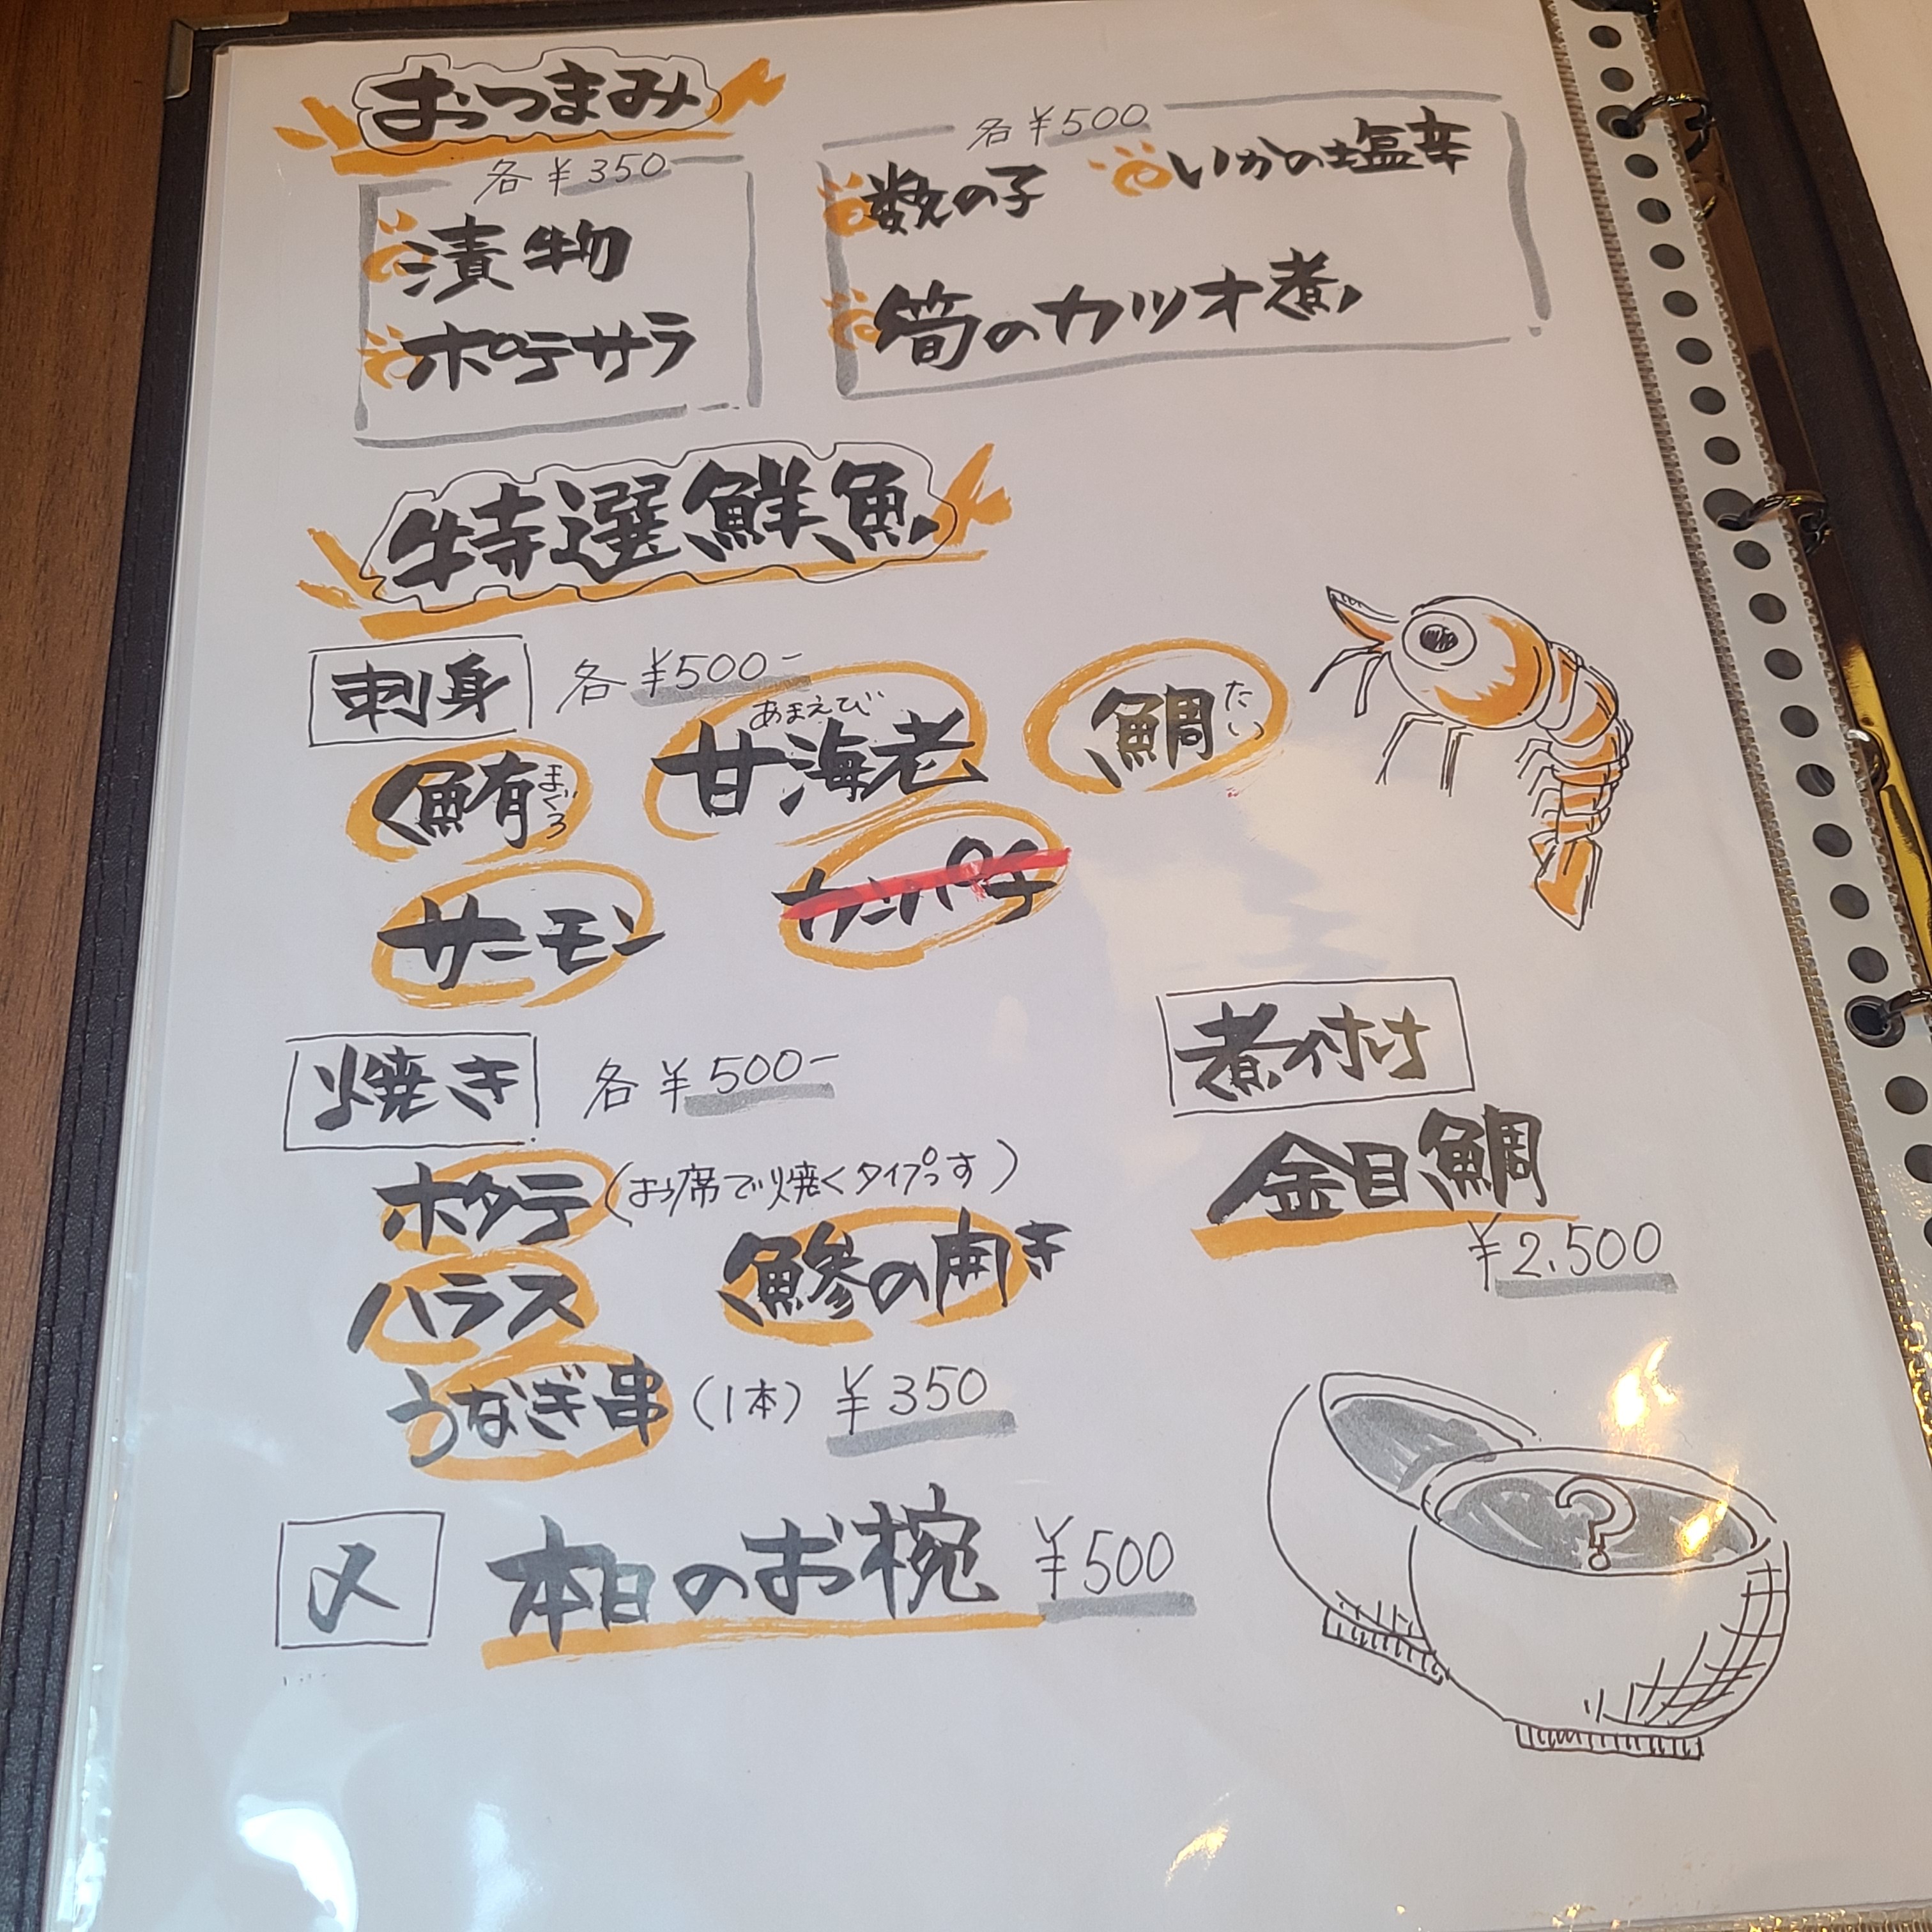 おつまみ
各¥350
漬物
ポテサラ
各¥500
数の子 いかの塩辛
筍のカツオ煮
特選鮮魚
刺身 各¥500-
鮪 まぐろ 甘海老 あまえび 鯛 たい
サーモン カンパチ
焼き 各¥500-
ホタテ (お席で焼くタイプっす)
ハラス 鯵の開き
うなぎ串 (1本) ¥350
煮付け
金目鯛
¥2,500
〆 本日のお椀 ¥500
?